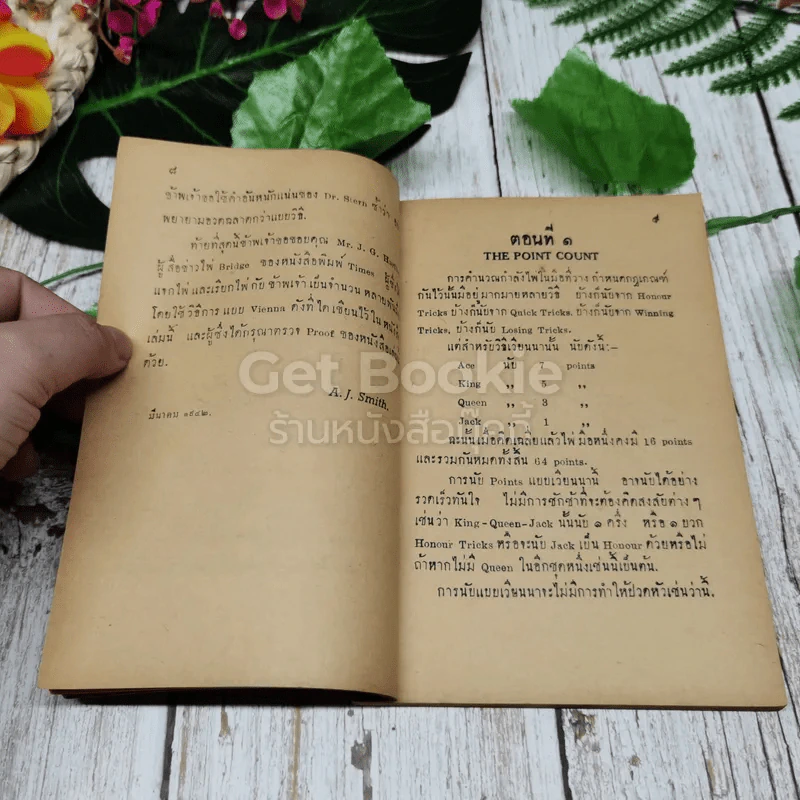 ๘
ข้าพเจ้าขอใช้คำอันหนักแน่นของ Dr. Stern ซ้ำว่า
พยายามอวดฉลาดกว่าแบบวิธี.
ท้ายที่สุดนี้ข้าพเจ้าขอขอบคุณ Mr. J. G.
ผู้สื่อข่าวไพ่ Bridge ของหนังสือพิมพ์ Times
แขกไพ่และเรียกไพ่กับข้าพเจ้าเป็นจำนวนหลาย
โดยใช้วิธีการแบบ Vienna ดังที่ได้เขียนไว้ใน
เล่มนี้ และผู้ซึ่งได้กรุณาตรวจ Proof ของหนังสือ
ด้วย.
A. J. Smith.
มีนาคม ๑๙๔๒.
๙
ตอนที่ ๑
THE POINT COUNT
การคำนวณกำลังไพ่ในมือที่วางกำหนดกฎเกณฑ์
กันไว้นั้นมีอยู่มากมายหลายวิธี บ้างก็นับจาก Honour
Tricks บ้างก็นับจาก Quick Tricks, บ้างก็นับจาก Winning
Tricks, บ้างก็นับ Losing Tricks.
แต่สำหรับวิธีเวียนนานั้น นับดังนี้:-
Ace นับ 7 points
King ,, 5 ,,
Queen ,, 3 ,,
Jack ,, 1 ,,
ฉะนั้นเมื่อคิดเฉลี่ยแล้วไพ่มือหนึ่งคงมี 16 points
และรวมกันหมดทั้งสิ้น 64 points.
การนับ Points แบบเวียนนานี้ อาจนับได้อย่าง
รวดเร็วทันใจ ไม่มีการชักช้าที่จะต้องคิดสงสัยต่าง ๆ
เช่นว่า King-Queen-Jack นั้นนับ ๑ ครึ่ง หรือ ๑ บวก
Honour Tricks หรือจะนับ Jack เป็น Honour ด้วยหรือไม่
ถ้าหากไม่มี Queen ในอีกชุดหนึ่งเช่นนี้เป็นต้น.
การนับแบบเวียนนาจะไม่มีการทำให้ปวดหัวเช่นว่านี้.
Get Bookie
ร้านหนังสือกู๊ดนี้